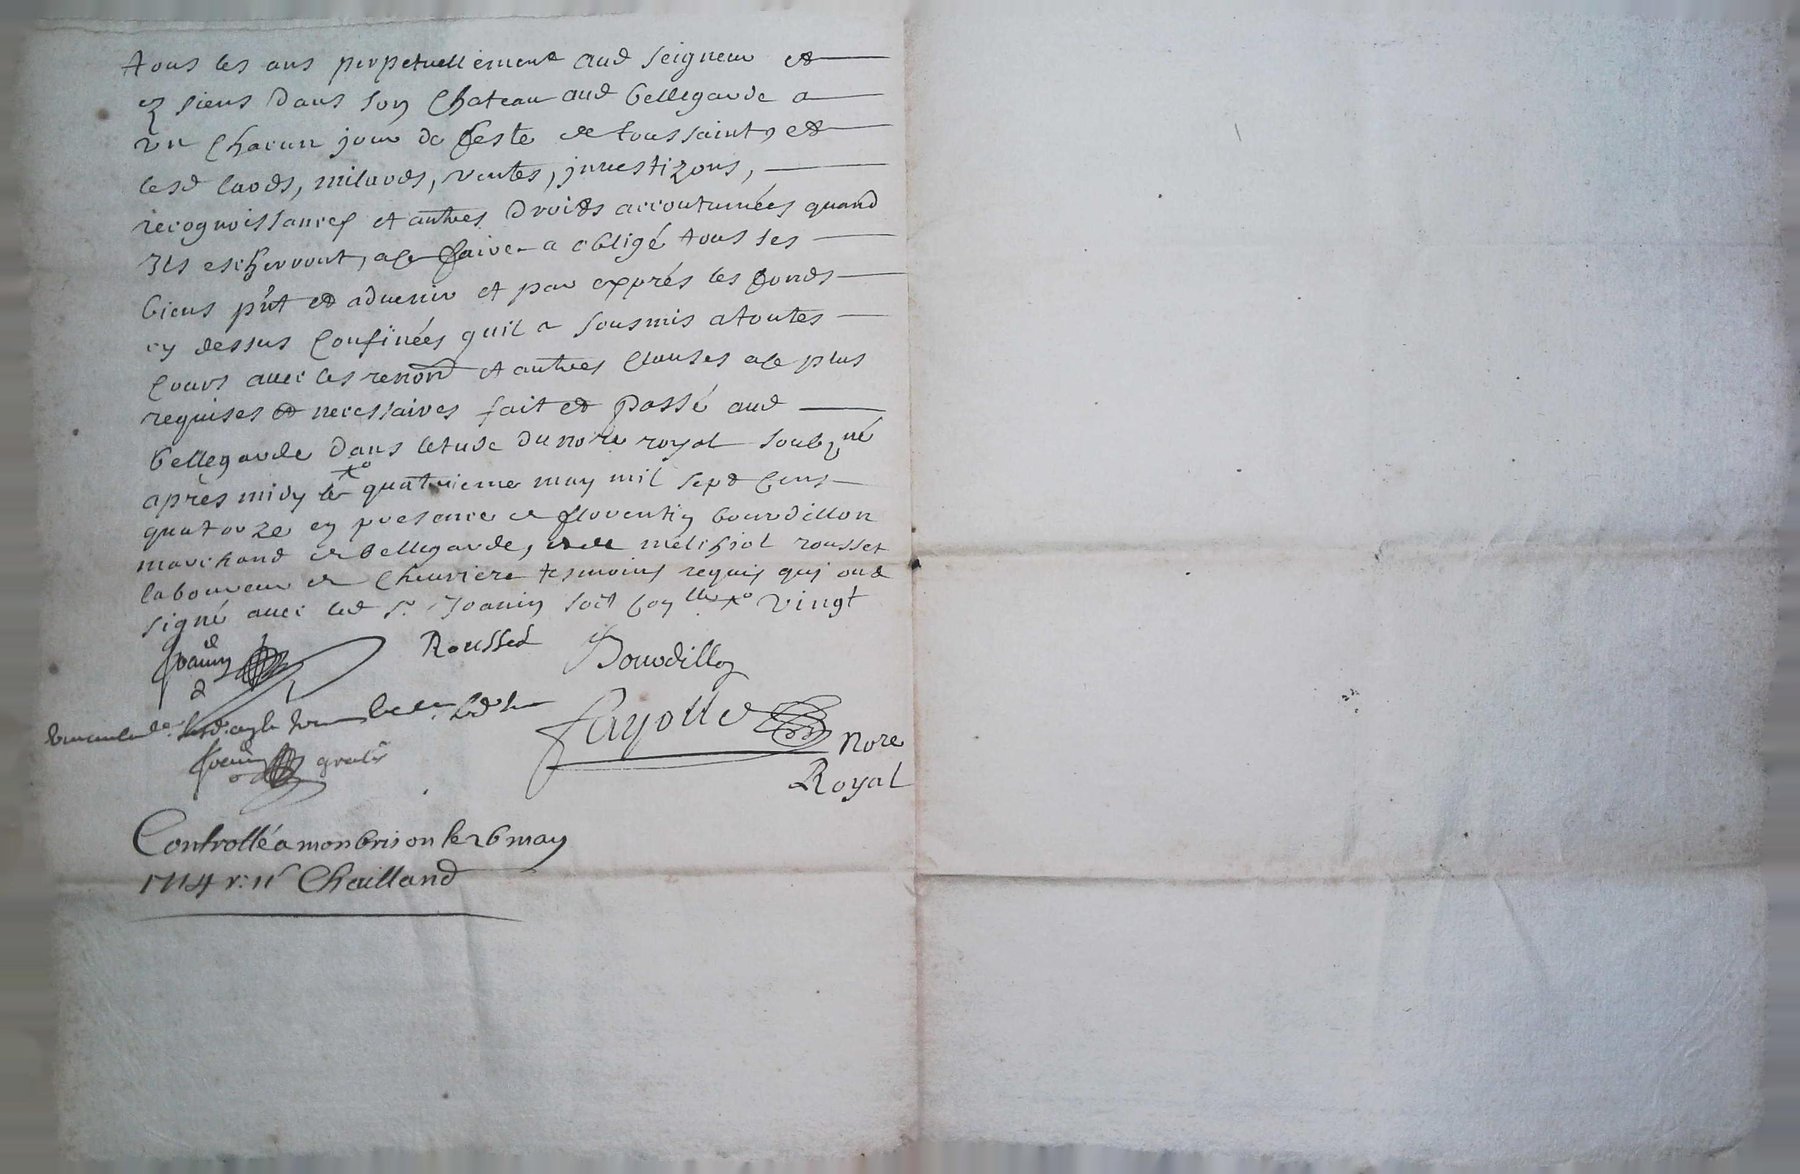 tous les ans perpetuellement aud seigneur et
ez siens dans son Chateau aud bellegarde a
vn Chacun jour de feste de toussaint, et
lesd laods, milaods, ventes, jnuestizons,
recognoissances et autres Droits accoutumées quand
Ils escherront, a ce faire a obligé tous ses
biens pnt et aduenir et par exprés les fonds
cy dessus Confinées quil a sousmis atoutes
Cours auec les renon et autres Clauses a ce plus
requises et necessaires fait et passé aud
bellegarde dans letude du nore royal soubzné
apres midy le quatrieme may mil sept Cens
quatorze en presence de florentin bourdillon
marchand de bellegarde, et de melchiol rousset
laboureur de Cheuriere tesmoins requis qui ont
signé auec led Sr Joanin soit Con vingt
Joanin
Rousset Bourdillon
Fayolle nore
Royal
Joanin gratis
Controllé a monbrison le 26 may
1714 Chailland